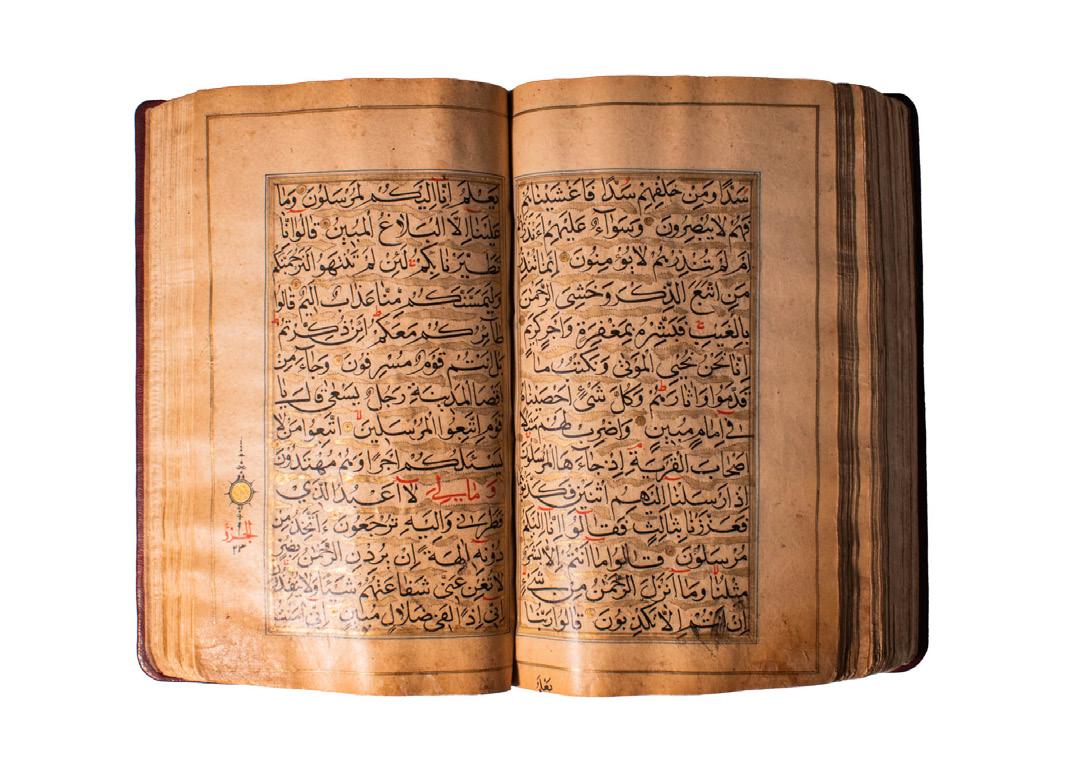 سَدًّا وَمِنْ خَلْفِهِمْ سَدًّا فَاَغْشَيْنَاهُمْ
فَهُمْ لَا يُبْصِرُونَ وَسَوَآءٌ عَلَيْهِمْ ءَاَنْذَرْتَهُمْ
اَمْ لَمْ تُنْذِرْهُمْ لَا يُؤْمِنُونَ اِنَّمَا تُنْذِرُ
مَنِ اتَّبَعَ الذِّكْرَ وَخَشِىَ الرَّحْمٰنَ
بِالْغَيْبِ فَبَشِّرْهُ بِمَغْفِرَةٍ وَاَجْرٍ كَرِيمٍ
اِنَّا نَحْنُ نُحْيِى الْمَوْتٰى وَنَكْتُبُ مَا
قَدَّمُوا وَاٰثَارَهُمْ وَكُلَّ شَىْءٍ اَحْصَيْنَاهُ
فِى اِمَامٍ مُبِينٍ وَاضْرِبْ لَهُمْ مَثَلًا
اَصْحَابَ الْقَرْيَةِ اِذْ جَآءَهَا الْمُرْسَلُونَ
اِذْ اَرْسَلْنَا اِلَيْهِمُ اثْنَيْنِ فَكَذَّبُوهُمَا
فَعَزَّزْنَا بِثَالِثٍ فَقَالُوا اِنَّا اِلَيْكُمْ
مُرْسَلُونَ قَالُوا مَا اَنْتُمْ اِلَّا بَشَرٌ
مِثْلُنَا وَمَا اَنْزَلَ الرَّحْمٰنُ مِنْ شَىْءٍ
اِنْ اَنْتُمْ اِلَّا تَكْذِبُونَ قَالُوا رَبُّنَا
يعلم
يَعْلَمُ اِنَّا اِلَيْكُمْ لَمُرْسَلُونَ وَمَا
عَلَيْنَا اِلَّا الْبَلَاغُ الْمُبِينُ قَالُوا اِنَّا
تَطَيَّرْنَا بِكُمْ لَئِنْ لَمْ تَنْتَهُوا لَنَرْجُمَنَّكُمْ
وَلَيَمَسَّنَّكُمْ مِنَّا عَذَابٌ اَلِيمٌ قَالُوا
طَآئِرُكُمْ مَعَكُمْ اَئِنْ ذُكِّرْتُمْ
بَلْ اَنْتُمْ قَوْمٌ مُسْرِفُونَ وَجَآءَ مِنْ
اَقْصَا الْمَدِينَةِ رَجُلٌ يَسْعٰى قَالَ يَا
قَوْمِ اتَّبِعُوا الْمُرْسَلِينَ اتَّبِعُوا مَنْ لَا
يَسْئَلُكُمْ اَجْرًا وَهُمْ مُهْتَدُونَ
وَمَا لِىَ لَا اَعْبُدُ الَّذِى
فَطَرَنِى وَاِلَيْهِ تُرْجَعُونَ ءَاَتَّخِذُ مِنْ
دُونِهِ اٰلِهَةً اِنْ يُرِدْنِ الرَّحْمٰنُ بِضُرٍّ
لَا تُغْنِ عَنِّى شَفَاعَتُهُمْ شَيْئًا وَلَا يُنْقِذُونِ
اِنِّى اِذًا لَفِى ضَلَالٍ مُبِينٍ اِنِّى اٰمَنْتُ
الجزء
٢٣